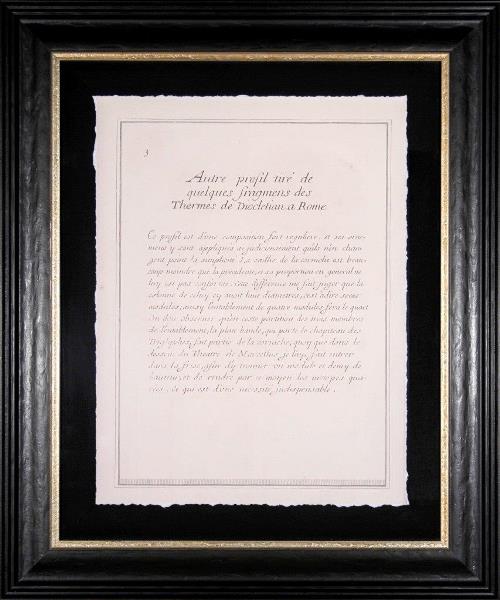 3
Autre profil tiré de
quelques fragmens des
Thermes de Diocletian a Rome
Ce profil est d'une composition fort reguliere, et ses orne-
mens y sont appliquez si judicieusement qu'ils n'en chan-
gent point la simplicité. La saillie de la corniche est beau-
coup moindre que la precedente, et sa proportion en general ne
luy est pas conforme. cette difference me fait juger que la
colonne de celuy cy avoit huit diametres, c'est adire seize
modules, ainsy l'entablement de quatre modules fera le quart
On doit observer qu'en cette partition des trois membres
de l'entablement, la plate bande, qui porte le chapiteau des
Tryglyfes, fait partie de la corniche, quoy que dans le
dessein du Theatre de Marcellus je l'aye fait entrer
dans la frise, afin d'y trouver un module et demy de
hauteur, et de rendre par ce moyen les metopes qua-
rées, ce qui est d'une necessité indispensable.